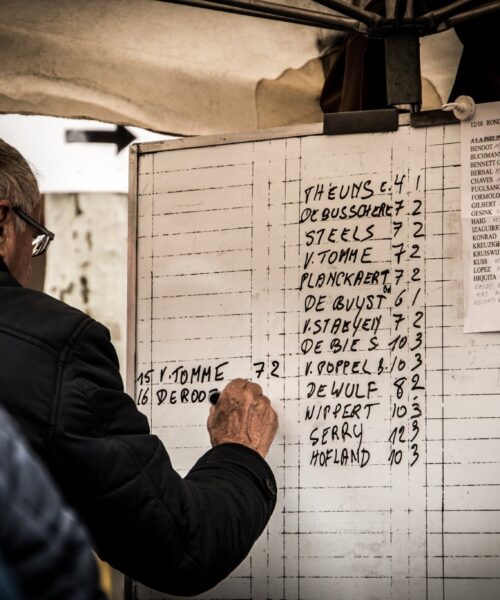 THEUNS E. 4 1
DEBUSSCHERE 7 2
STEELS 7 2
V. TOMME 7 2
PLANCKAERT 7 2
DE BUYST 6 1
V. STAEYEN 7 2
DE BIE S. 10 3
V. POPPEL B. 10 3
DEWULF 8 2
WIPPERT 10 3
SERRY 12 3
HOFLAND 10 3
15 V. TOMME 7 2
16 DEROO
12/10 ROND
BENOOT
BUCHMANN
BENNETT
BERNAL
CHAVES
FUGLSANG
FORMOLO
GILBERT
GESINK
HAIG
IZAGUIRRE
KONRAD
KREUZIGER
KRUIJSWIJK
KUSS
LOPEZ
HIQUITA